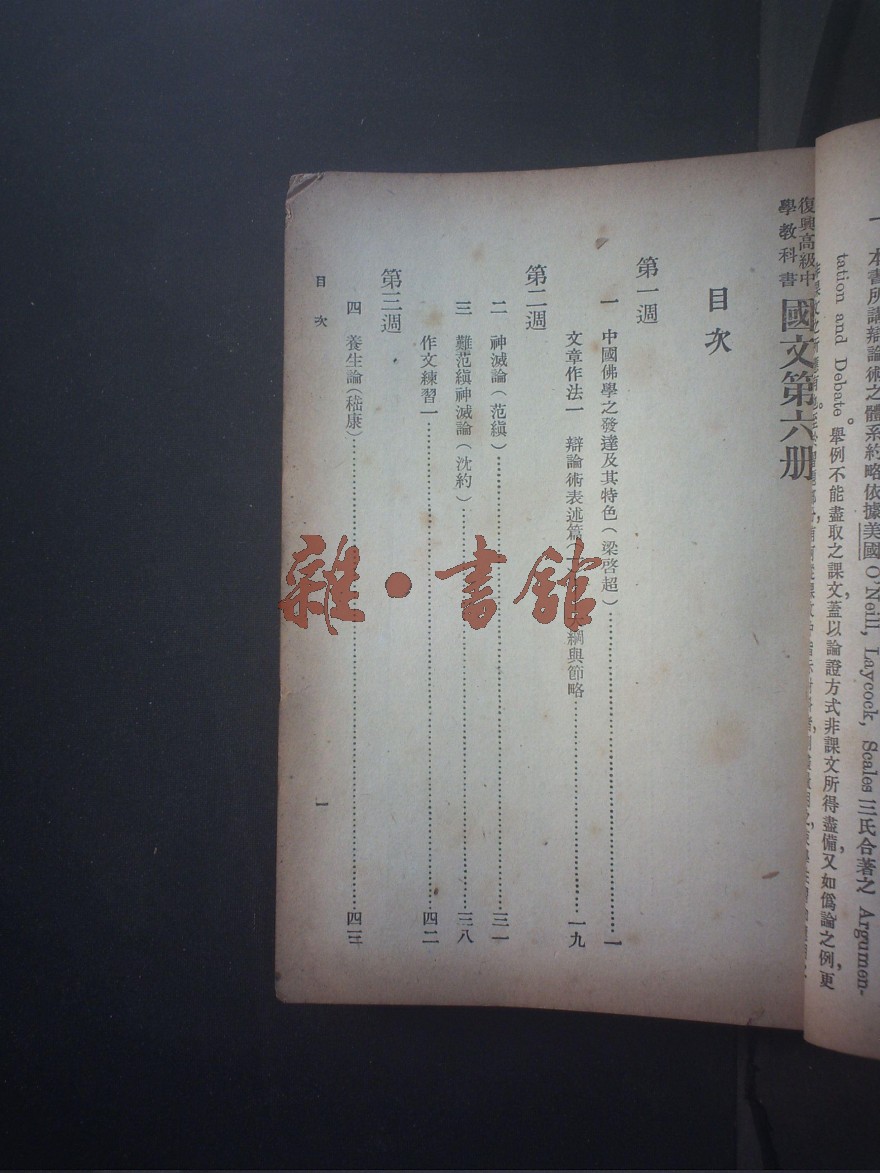 一 本書所講辯論術之體系約略依據美國O'Neill, Laycock, Scales三氏合著之 Argumen-
tation and Debate。舉例不能盡取之課文,蓋以論證方式非課文所得盡備,又如僞論之例,更
復興高級中
學教科書
國文第六册
目次
第一週
一 中國佛學之發達及其特色(梁啓超)……一
文章作法一 辯論術表述篇 綱與節略……一九
第二週
二 神滅論(范縝)……三一
三 難范縝神滅論(沈約)……三八
作文練習一……四二
第三週
四 養生論(嵇康)……四三
目次
一
雜·書館